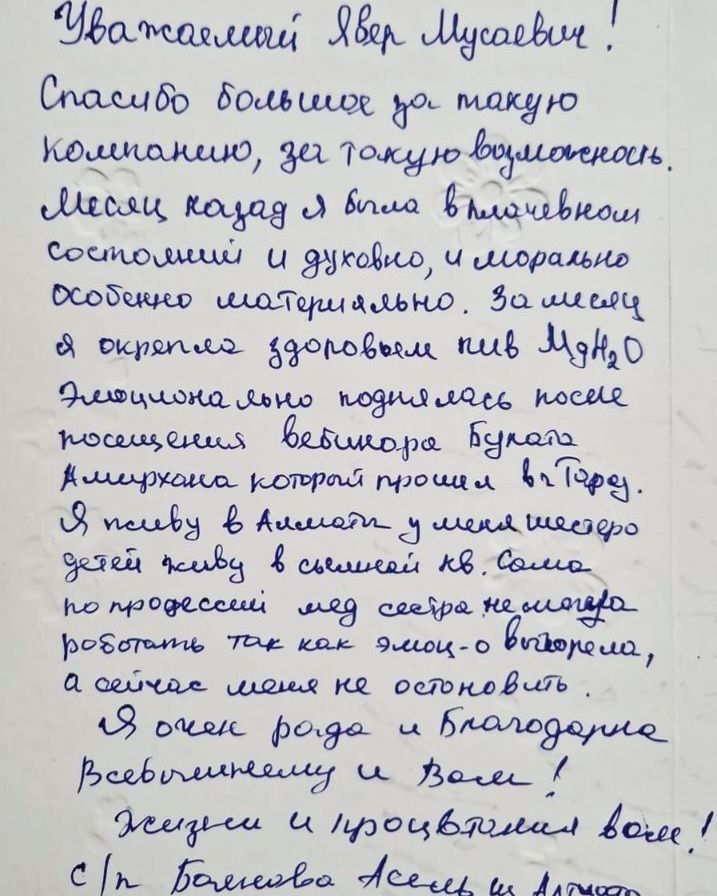 Уважаемый Явер Мусаевич!
Спасибо большое за такую
компанию, за такую возможность.
Месяц назад я была в плачевном
состояний и духовно, и морально
особенно материяльно. За месяц
я окрепла здоровьем пив MgH₂O
Эмоционально поднялась после
посещения вебинара Булата
Амирхана который прошел в г Тараз.
Я живу в Алматы у меня шестеро
детей живу в сьемной кв. Сама
по профессий мед сестра, не могла
работать так как эмоц-о выгорела,
а сейчас меня не остоновить.
Я очен рада и Благодарна
Всевышнему и Вам!
Жизни и процветания вам!
с/п Асель